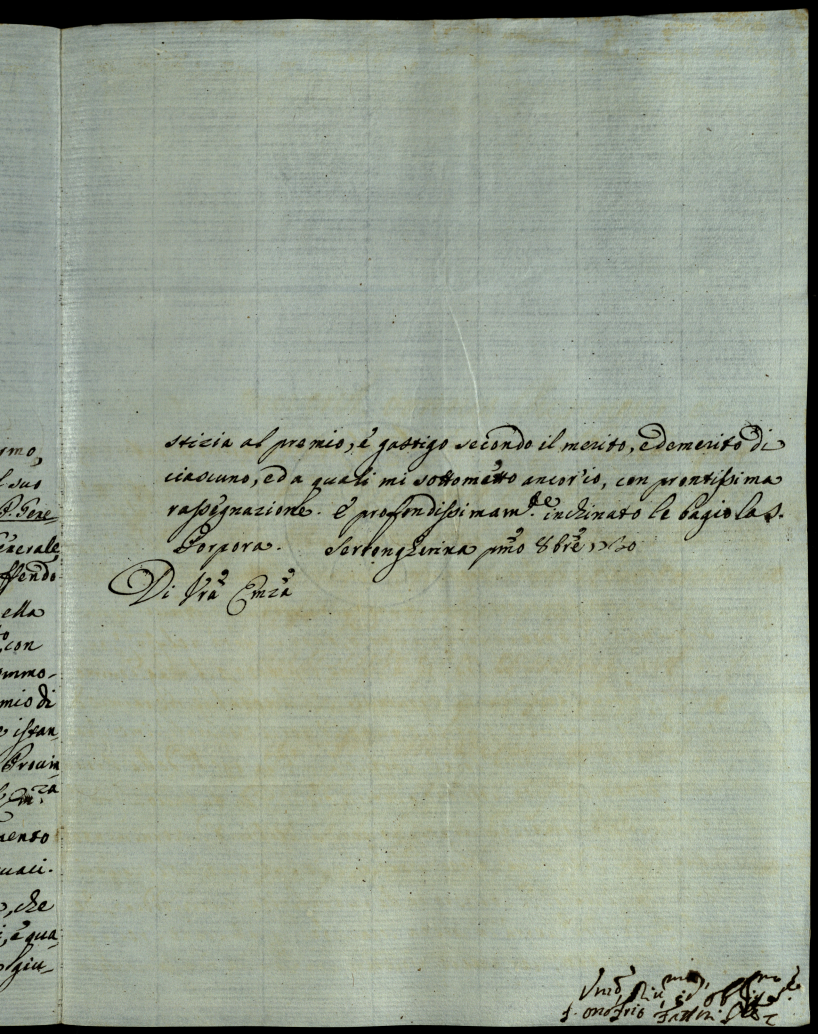 rmo,
l suo
P. Gene
Generale,
ffendo
ella
con
ommo-
mio di
e istan
Provin
Em.za
mento
uaci.
o, che
i, è qua
giu-
stizia al premio, è gastigo secondo il merito, e demerito di
ciascuno, ed a quali mi sottometto ancor'io, con prontissima
rassegnazione. È profondissimam.te inchinato le bagio la S.
Porpora. Sertengherina pmo 8bre,
Di Vra Emza
Vmo
f. Onofrio